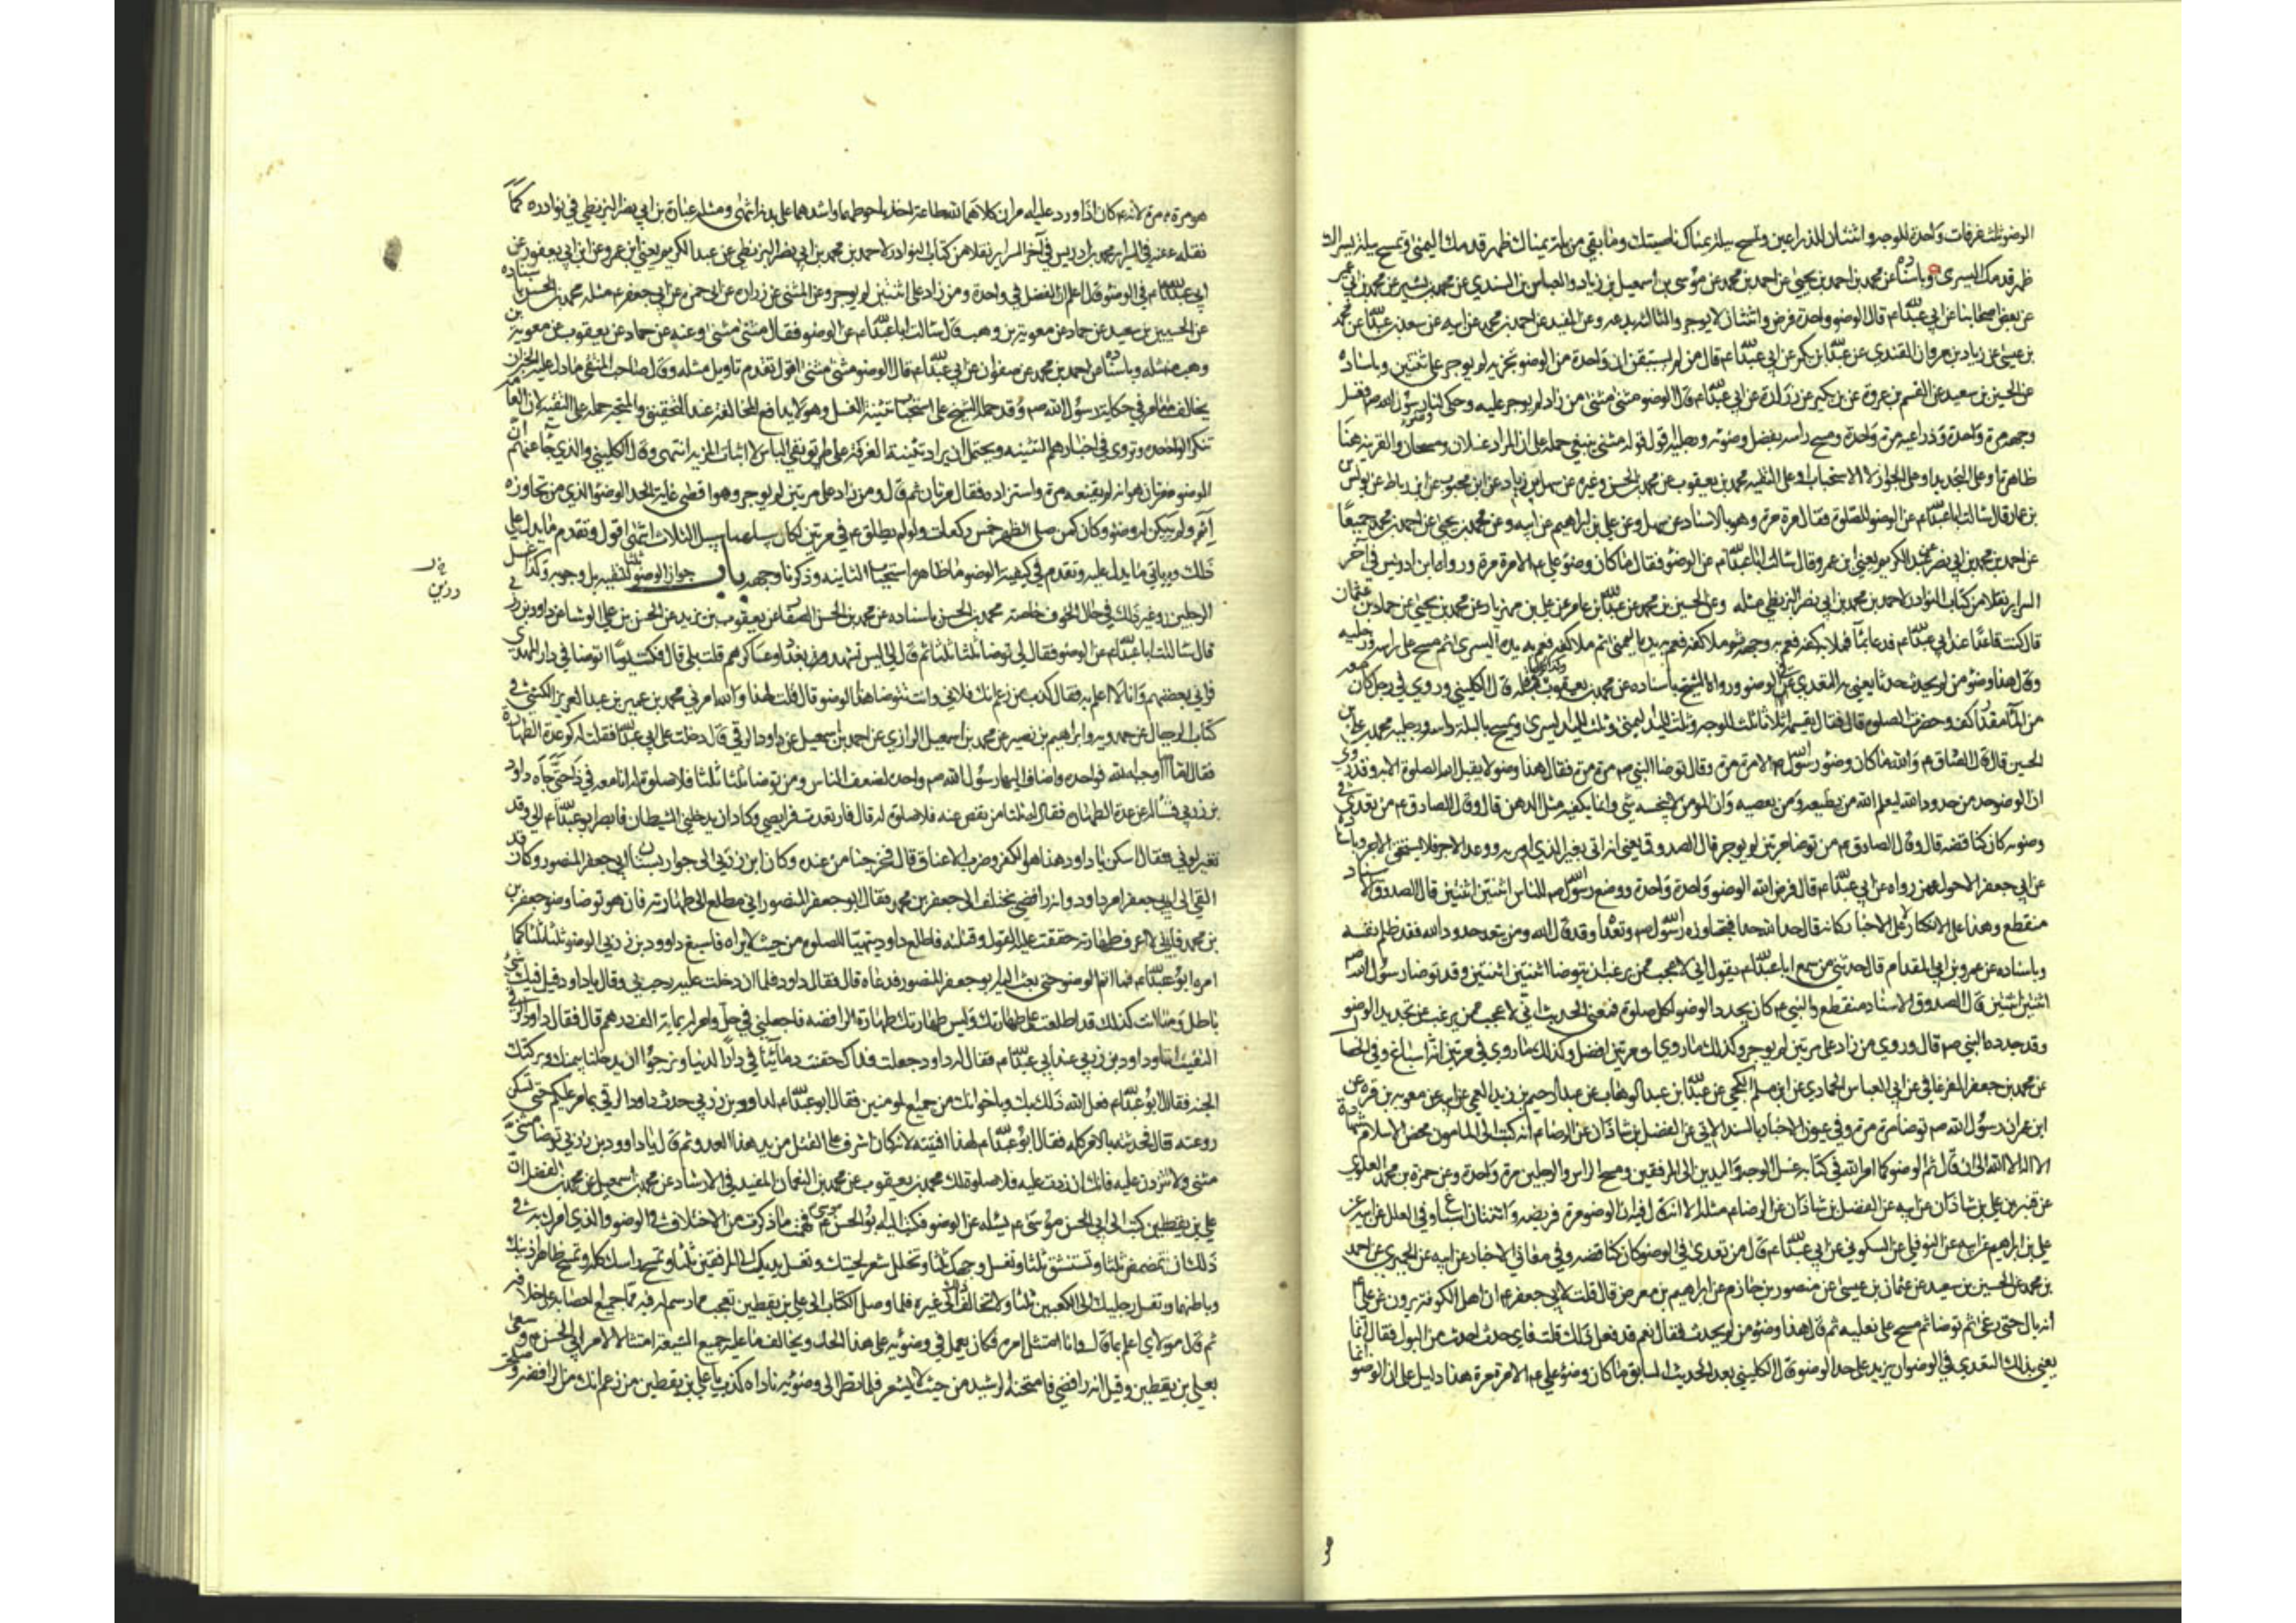 الوضوء ثلث غرفات واحدة للوجه واثنتان للذراعين وتمسح ببلة يمناك ناصيتك وما بقي من بلة يمناك ظهر قدمك اليمنى وتمسح ببلة يسراك
ظهر قدمك اليسرى وباسناده عن محمد بن احمد بن يحيى عن احمد بن محمد عن موسى بن اسمعيل بن زياد والعباس بن السندي عن محمد بن بشير عن محمد بن ابي عمير
عن بعض اصحابنا عن ابي عبدالله ع قال الوضوء واحدة فرض واثنتان لا يوجر والثالث بدعه وعن المفيد عن احمد بن محمد عن ابيه عن سعد بن عبدالله عن محمد
بن عيسى عن زياد بن مروان القندي عن عبدالله بن بكير عن ابي عبدالله ع قال من لم يستيقن ان واحدة من الوضوء تجزيه لم يوجر على ثنتين وباسناده
عن الحسين بن سعيد عن القسم بن عروة عن بن بكير عن زرارة عن ابي عبدالله ع قال الوضوء مثنى مثنى من زاد لم يوجر عليه وحكى لنا وضوء رسول الله ص فغسل
وجهه مرة واحدة وذراعيه مرة واحدة ومسح راسه بفضل وضوئه ورجليه اقول قوله مثنى ينبغي حمله على ان المراد غسلان ومسحان والقرينه هنا
ظاهرة او على التجديد او على الجواز لا الاستحباب او على التقيه محمد بن يعقوب عن محمد بن الحسن وغيره عن سهل بن زياد عن ابن محبوب عن ابن رباط عن يونس
بن عمار قال سالت ابا عبدالله ع عن الوضوء للصلوة فقال مرة مرة وهو بالاسناد عن سهل وعن علي بن ابراهيم عن ابيه وعن محمد بن يحيى عن احمد بن محمد جميعا
عن احمد بن محمد بن ابي نصر عن عبد الكريم يعني ابن عمرو قال سالت ابا عبدالله ع عن الوضوء فقال ما كان وضوء علي ع الا مرة مرة ورواه ابن ادريس في آخر
السراير نقلا من كتاب النوادر لاحمد بن محمد بن ابي نصر البزنطي مثله وعن الحسين بن محمد عن عبدالله بن عامر عن علي بن مهزيار عن محمد بن يحيى عن حماد بن عثمان
قال كنت قاعدا عند ابي عبدالله ع فدعا بماء فملا به كفه فعم به وجهه ثم ملا كفه فعم به يده اليمنى ثم ملا كفه فعم به يده اليسرى ثم مسح على راسه ورجليه
وقال هذا وضوء من لم يحدث حدثا يعني به التعدي في الوضوء ورواه الشيخ باسناده عن محمد بن يعقوب وكذا كل ما قبله قال الكليني وروي في رجل كان معه
من الماء مقدار كف وحضرت الصلوة قال فقال يقسمه اثلاثا ثلث للوجه وثلث لليد اليمنى وثلث لليد اليسرى ويمسح بالبلة راسه ورجليه محمد بن علي بن
الحسين قال قال الصادق ع والله ما كان وضوء رسول الله ص الا مرة مرة وقال توضا النبي ص مرة مرة فقال هذا وضوء لا يقبل الله الصلوة الا به وقد روي
ان الوضوء حد من حدود الله ليعلم الله من يطيعه ومن يعصيه وان المومن لا ينجسه شي وانما يكفيه مثل الدهن قال وقال الصادق ع من تعدى في
وضوئه كان كناقضه قال وقال الصادق ع من توضا مرتين لم يوجر قال الصدوق يعني انه اتى بغير الذي امر به ووعد الاجر فلا يستحق الاجر وباسناده
عن ابي جعفر الاحول عمن رواه عن ابي عبدالله ع قال فرض الله الوضوء واحدة واحدة ووضع رسول الله ص للناس اثنتين اثنتين قال الصدوق الاسناد
منقطع وهذا على الانكار لا على الاخبار كانه قال حد الله حدا فتجاوزه رسول الله ص وتعداه وقد قال الله ومن يتعد حدود الله فقد ظلم نفسه
وباسناده عن عمرو بن ابي المقدام قال حدثني من سمع ابا عبدالله ع يقول اني لاعجب ممن يرغب ان يتوضا اثنتين اثنتين وقد توضا رسول الله ص
اثنتين اثنتين قال الصدوق الاسناد منقطع والنبي ع كان يجدد الوضوء لكل صلوة فمعنى الحديث اني لاعجب ممن يرغب عن تجديد الوضوء
وقد جدده النبي ص قال وروي من زاد على مرتين لم يوجر وكذلك ما روي ان مرتين افضل وكذلك ما روي في مرتين انه اسباغ وفي الخصال
عن محمد بن جعفر الفرغاني عن ابي العباس الحمادي عن ابن مسلم الكجي عن عبدالله بن عبد الوهاب عن عبد الرحيم بن زيد العمي عن ابيه عن معويه بن قره عن
ابن عمر ان رسول الله ص توضا مرة مرة وفي عيون الاخبار بالسند الاتي عن الفضل بن شاذان عن الرضا ع انه كتب الى المامون محض الاسلام شهادة
الا اله الا الله الى ان قال ثم الوضوء كما امر الله في كتابه غسل الوجه واليدين الى المرفقين ومسح الراس والرجلين مرة واحدة وعن حمزة بن محمد العلوي
عن قنبر بن علي بن شاذان عن ابيه عن الفضل بن شاذان عن الرضا ع مثله الا انه قال فيه ان الوضوء مرة فريضه واثنتان اسباغ وفي العلل عن ابيه عن
علي بن ابراهيم عن ابيه عن النوفلي عن السكوني عن ابي عبدالله ع قال من تعدى في الوضوء كان كناقضه وفي معاني الاخبار عن ابيه عن الحميري عن احمد
بن محمد عن الحسين بن سعيد عن عثمان بن عيسى عن منصور بن حازم عن ابراهيم بن معرض قال قلت لابي جعفر ع ان اهل الكوفة يروون عن علي ع
انه بال حتى رغى ثم توضا ثم مسح على نعليه ثم قال هذا وضوء من لم يحدث فقال نعم قد فعل ذلك قلت فاي حدث احدث من البول فقال انما
يعني بذلك التعدي في الوضوء ان يزيد على حد الوضوء قال الكليني بعد الحديث السابق ما كان وضوء علي ع الا مرة مرة هذا دليل على ان الوضوء انما
هو مرة مرة لانه ع كان اذا ورد عليه امران كلاهما لله طاعة اخذ باحوطهما واشدهما على بدنه انتهى ومثله عبارة بن ابي نصر البزنطي في نوادره كما
نقله عنه في السراير محمد بن ادريس في آخر السراير نقلا من كتاب النوادر لاحمد بن محمد بن ابي نصر البزنطي عن عبد الكريم يعني ابن عمرو عن ابن ابي يعفور عن
ابي عبدالله ع في الوضوء قال اعلم ان الفضل في واحدة ومن زاد على اثنتين لم يوجر وعن المثنى عن زرارة عن ابي حمزة عن ابي جعفر ع مثله محمد بن الحسن باسناده
عن الحسين بن سعيد عن حماد عن معوية بن وهب قال سالت ابا عبدالله ع عن الوضوء فقال مثنى مثنى وعنه عن حماد عن يعقوب عن معوية بن
وهب مثله وباسناده عن احمد بن محمد عن صفوان عن ابي عبدالله ع قال الوضوء مثنى مثنى اقول تقدم تاويل مثله وقال صاحب المنتقى ما دل عليه الخبران
يخالف ما مر في حكاية وضوء رسول الله ص وقد حمله الشيخ على استحباب تثنية الغسل وهو لا يدافع المخالفة عند التحقيق والمتجه حمله على التقيه لان العامة
تنكر الواحده وتروي في اخبارهم التثنيه ويحتمل ان يراد تثنية الغرفة على طريق نفي الباس لا اثبات المزيه انتهى وقال الكليني والذي جاء عنهم ان
الوضوء مرتان هو انه لم يقنعه مرة واستزاده فقال مرتان ثم قال ومن زاد على مرتين لم يوجر وهو اقصى غاية الحد الوضوء الذي من تجاوزه
اثم ولم يكن له وضوء وكان كمن صلى الظهر خمس ركعات ولو لم يطلق ع في مرتين لكان سبيلهما سبيل الثلاث انتهى اقول وتقدم ما يدل على
ذلك وياتي ما يدل عليه وتقدم في كيفية الوضوء ما ظاهره استحباب الثانيه وذكرنا وجهه باب جواز الوضوء ثلثا للتقيه بل وجوبه وكذا غسل
الرجلين وغير ذلك في حال الخوف خاصه محمد بن الحسن باسناده عن محمد بن الحسن الصفار عن يعقوب بن يزيد عن الحسن بن علي الوشا عن داود بن زربي
قال سالت ابا عبدالله ع عن الوضوء فقال لي توضا ثلثا ثلثا ثم قال لي اليس تشهد بغداد وعساكرهم قلت بلى قال فكنت يوما اتوضا في دار المهدي
فراني بعضهم وانا لا اعلم به فقال كذب من زعم انك فلاني وانت تتوضا هذا الوضوء قال قلت لهذا والله امرني محمد بن عمر بن عبد العزيز الكشي في
كتاب الرجال عن حمدويه وابراهيم بن نصير عن محمد بن اسمعيل الرازي عن احمد بن اسمعيل عن داود الرقي قال دخلت على ابي عبدالله فقلت له كم عدة الطهارة
فقال اما ما اوجبه الله فواحده واضاف اليها رسول الله ص واحده لضعف الناس ومن توضا ثلثا ثلثا فلا صلوة له انا معه في ذا حتى جاه داود
بن زربي فساله عن عدة الطهارة فقال له ثلثا من نقص عنه فلا صلوة له قال فارتعدت فرايصي وكاد ان يدخلني الشيطان فابصر ابو عبدالله ع الي وقد
تغير لوني فقال اسكن يا داود هذا هو الكفر وضرب الاعناق قال فخرجنا من عنده وكان ابن زربي الى جوار بستان ابي جعفر المنصور وكان قد
القي الى ابي جعفر امر داود وانه رافضي يختلف الى جعفر بن محمد فقال ابو جعفر المنصور اني مطلع الى طهارته فان هو توضا وضوء جعفر بن
بن محمد فاني لاعرف طهارته حققت عليه القول وقتلته فاطلع داود يتهيا للصلوة من حيث لا يراه فاسبغ داود بن زربي الوضوء ثلثا ثلثا كما
امره ابو عبدالله ع فما اتم الوضوء حتى بعث اليه ابو جعفر المنصور فدعاه قال فقال داود فلما ان دخلت عليه رحب بي وقال يا داود قيل فيك شي
باطل وما انت كذلك قد اطلعت على طهارتك وليس طهارتك طهارة الرافضه فاجعلني في حل وامر له بماية الف درهم قال فقال داود الرقي
التقيت انا وداود بن زربي عند ابي عبدالله ع فقال له داود جعلت فداك حقنت دمائنا في دار الدنيا ونرجوا ان ندخل بيمنك وبركتك
الجنه فقال ابو عبدالله ع فعل الله ذلك بك وباخوانك من جميع المومنين فقال ابو عبدالله ع لداود بن زربي حدث داود الرقي بما مر عليكم حتى تسكن
روعته قال فحدثته بالامر كله فقال ابو عبدالله ع لهذا افتيته لانه كان اشرف على القتل من يد هذا العدو ثم قال يا داود بن زربي توضا مثنى
مثنى ولا تزدن عليه فانك ان زدت عليه فلا صلوة لك محمد بن يعقوب عن محمد بن النعمان المفيد في الارشاد عن محمد بن اسمعيل عن محمد بن الفضل ان
علي بن يقطين كتب الى ابي الحسن موسى ع يساله عن الوضوء فكتب اليه ابو الحسن ع فهمت ما ذكرت من الاختلاف في الوضوء والذي امرك به في
ذلك ان تمضمض ثلثا وتستنشق ثلثا وتغسل وجهك ثلثا وتخلل شعر لحيتك وتغسل يديك الى المرفقين ثلثا وتمسح راسك كله وتمسح ظاهر اذنيك
وباطنهما وتغسل رجليك الى الكعبين ثلثا ولا تخالف ذلك الى غيره فلما وصل الكتاب الى علي بن يقطين تعجب مما رسم له فيه مما جميع العصابه على خلافه
ثم قال مولاي اعلم بما قال وانا امتثل امره فكان يعمل في وضوئه على هذا الحد ويخالف ما عليه جميع الشيعة امتثالا لامر ابي الحسن ع وسعى
بعلي بن يقطين وقيل انه رافضي فامتحنه الرشيد من حيث لا يشعر فلما نظر الى وضوئه ناداه كذب يا علي بن يقطين من زعم انك من الرافضه وصلحت